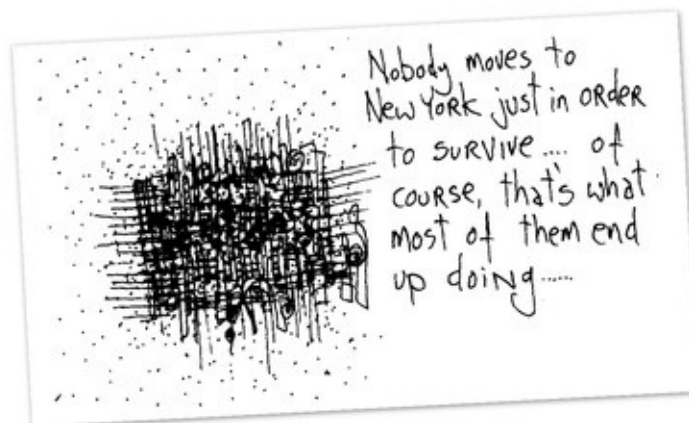 Nobody moves to
New York just in order
to survive.... of
course, that's what
most of them end
up doing......